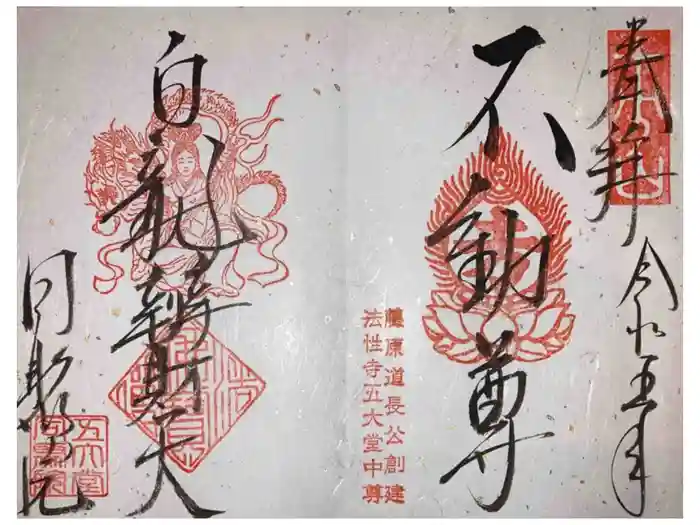 奉拝
令和五年
不動尊
藤原道長公創建
法性寺五大堂中尊
白龍辨財天
同聚院
五大堂
同聚院